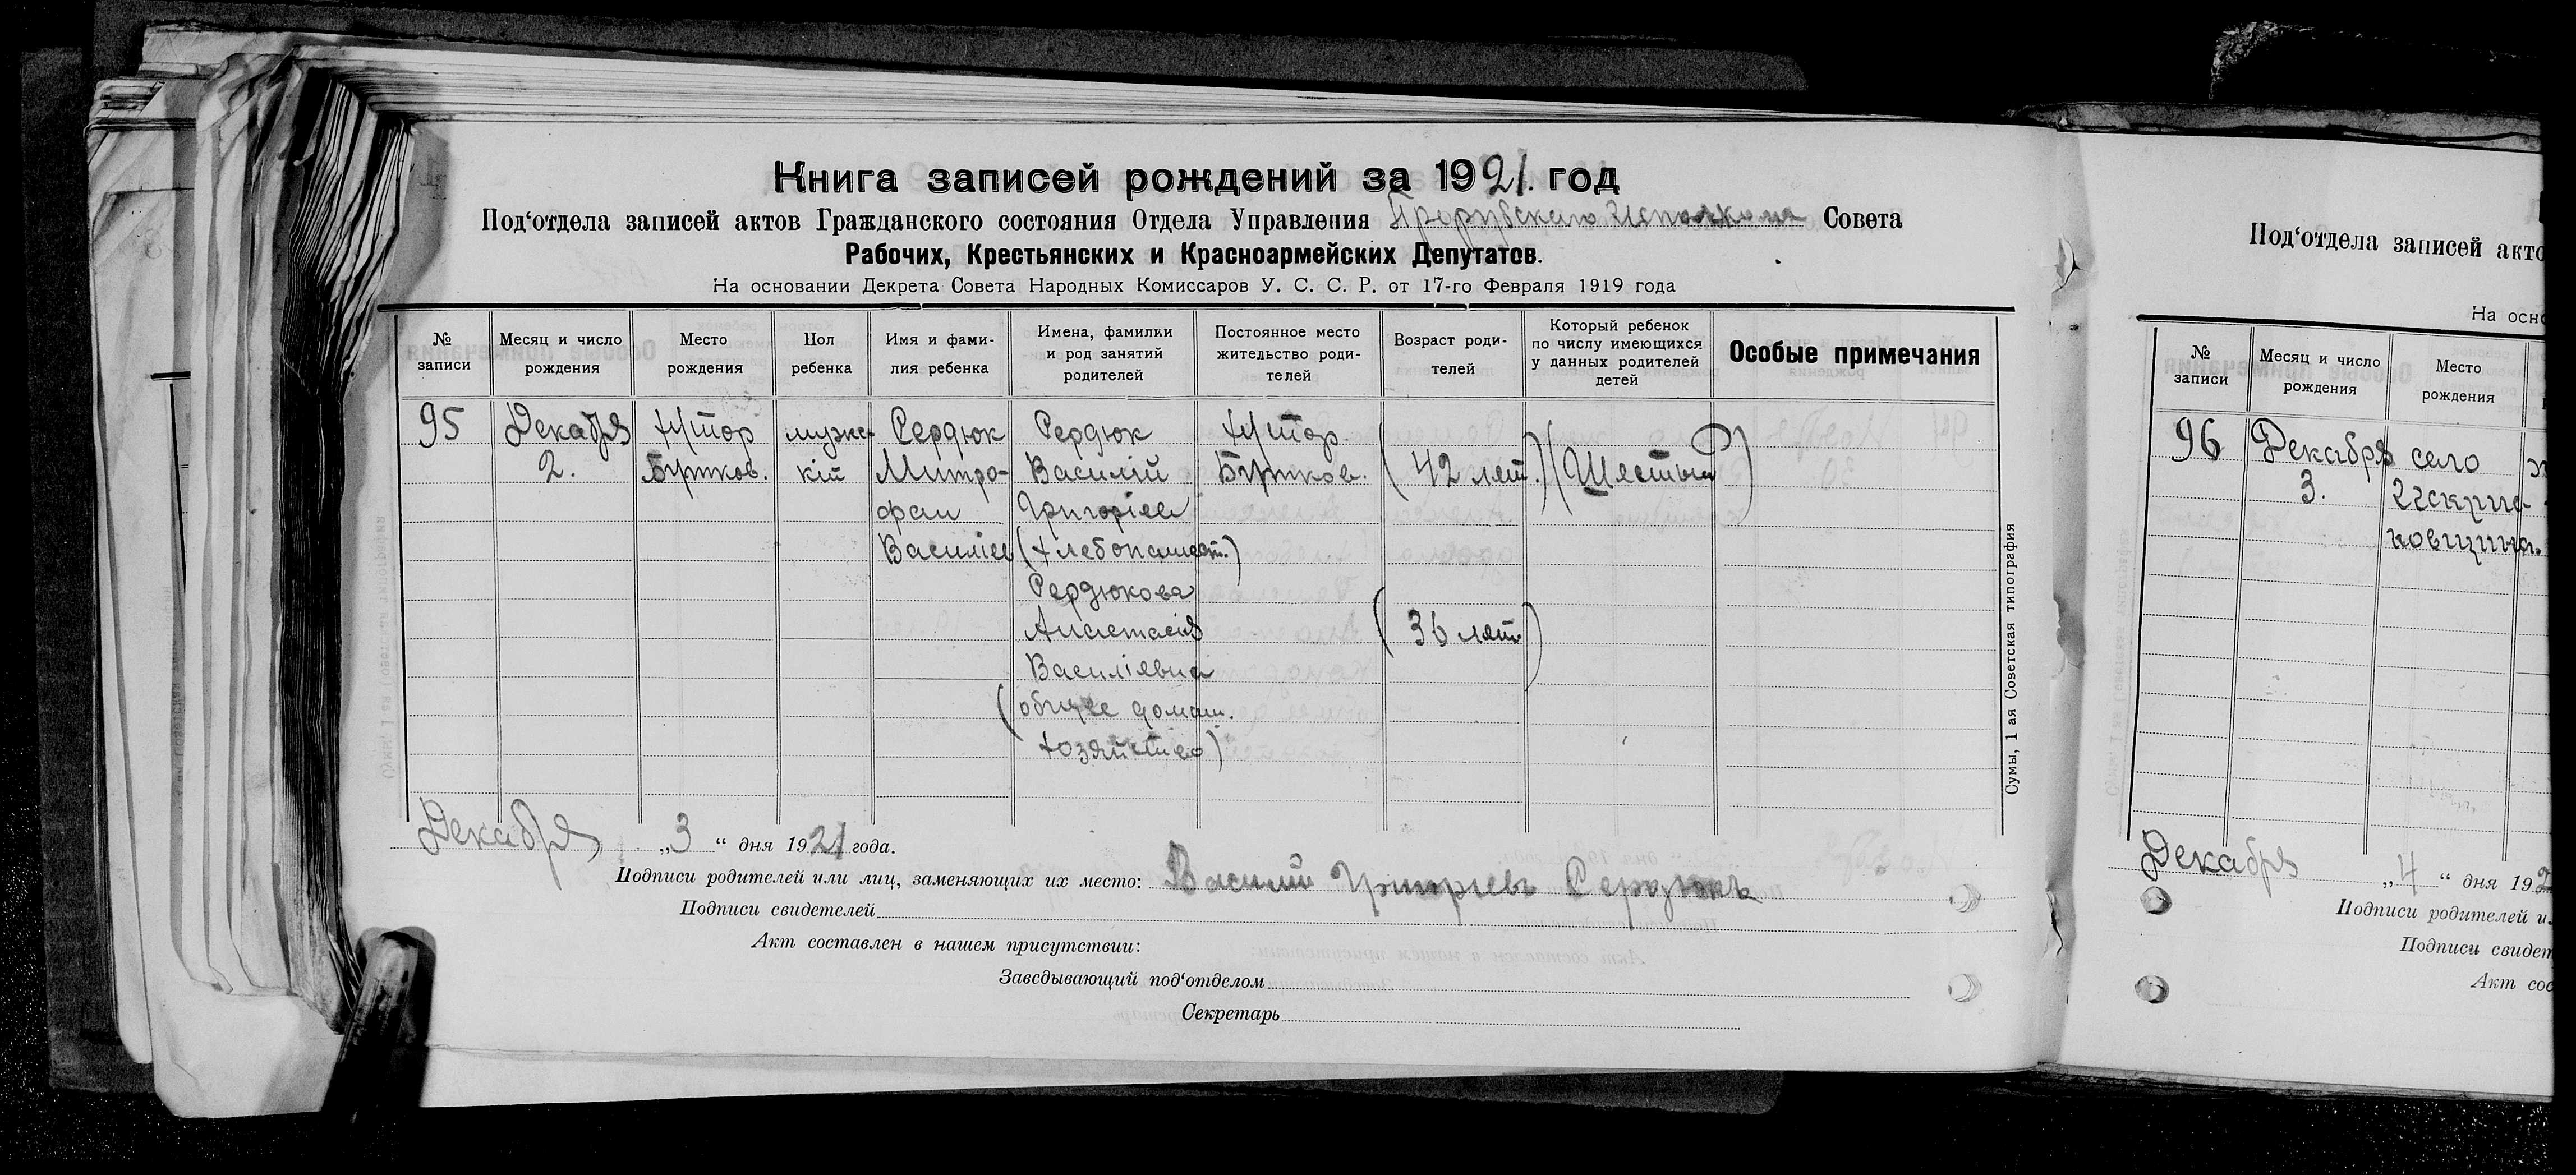 Книга записей рождений за 1921. год
Под‘отдела записей актов Гражданского состояния Отдела Управления Прорубского Исполкома Совета
Рабочих, Крестьянских и Красноармейских Депутатов.
На основании Декрета Совета Народных Комиссаров У. С. С. Р. от 17-го Февраля 1919 года
№ записи
Месяц и число рождения
Место рождения
Пол ребенка
Имя и фами- лия ребенка
Имена, фамилии и род занятий родителей
Постоянное место жительство роди- телей
Возраст роди- телей
Который ребенок по числу имеющихся у данных родителей детей
Особые примечания
95 Декабря Хутор мужс Сердюк Сердюк Хутор
2. Бутков. кій Митро- Василій Бутков. (42 лет.) (Шестый)
фан Григоріев
Василіев (хлебопашест.)
Сердюкова
Анастасія (36 лет.)
Василіевна
(общее домаш.
хозяйство)
Декабря „3“ дня 1921 года.
Подписи родителей или лиц, заменяющих их место: Василий Григориевъ Сердюкъ
Подписи свидетелей
Акт составлен в нашем присутствии:
Заведывающий под‘отделом
Секретарь
Сумы, 1 ая Советская типография
Под‘отдела записей акто
На осно
№ записи
Месяц и число рождения
Место рождения
96 Декабря село
3. Искрис
ковщина.
Декабря „4“ дня 192
Подписи родителей и
Подписи свидет
Акт сос